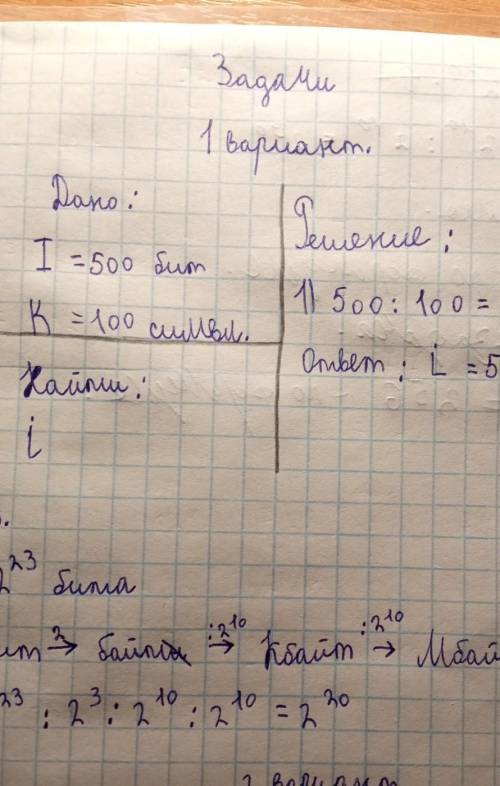 Задачи
1 вариант.
Дано:
I = 500 бит
K = 100 символ.
Найти:
i
Решение:
1) 500 : 100 =
Ответ: i = 5
2²³ бита
байты :2¹⁰ → Кбайт :2¹⁰ → Мбай
²³ : 2³ : 2¹⁰ : 2¹⁰ = 2²⁰
вариант